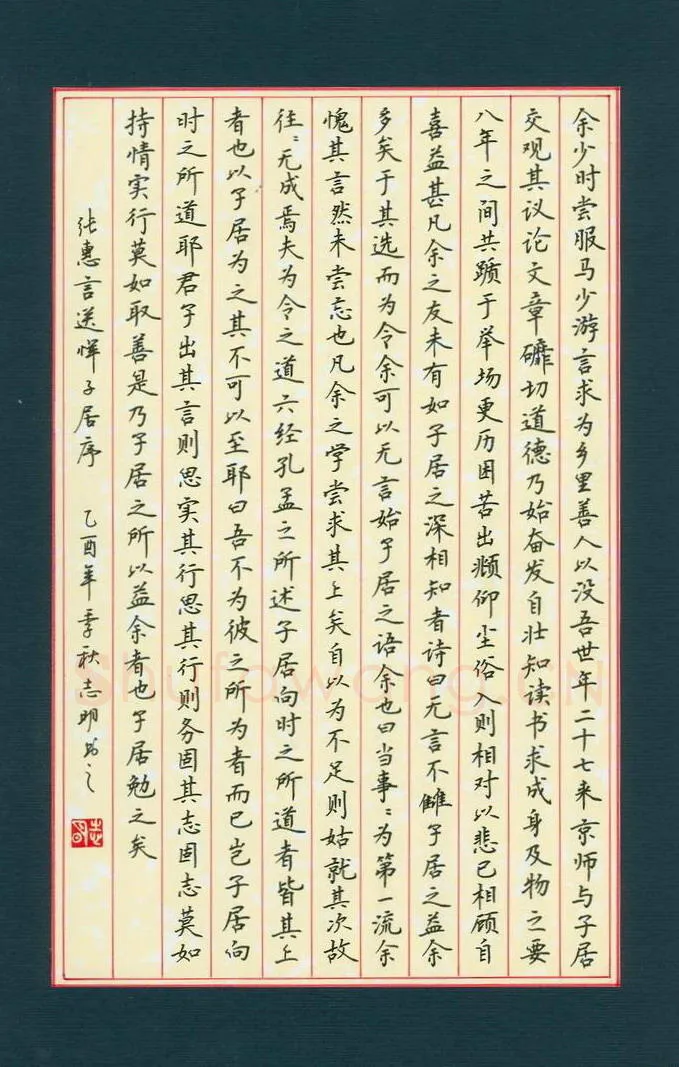 余少时尝服马少游言求为乡里善人以没吾世年二十七来京师与子居
交观其议论文章礲切道德乃始奋发自壮知读书求成身及物之要
八年之间共踬于举场更历困苦出频仰尘俗入则相对以悲已相顾自
喜益甚凡余之友未有如子居之深相知者诗曰无言不雠子居之益余
多矣于其选而为令余可以无言始子居之语余也曰当事〻为第一流余
愧其言然未尝忘也凡余之学尝求其上矣自以为不足则姑就其次故
往〻无成焉夫为令之道六经孔孟之所述子居向时之所道者皆其上
者也以子居为之其不可以至耶曰吾不为彼之所为者而已岂子居向
时之所道耶君子出其言则思实其行思其行则务固其志固志莫如
持情实行莫如取善是乃子居之所以益余者也子居勉之矣
张惠言送恽子居序 乙酉年季秋志明书之
志明
Shufawang.CN